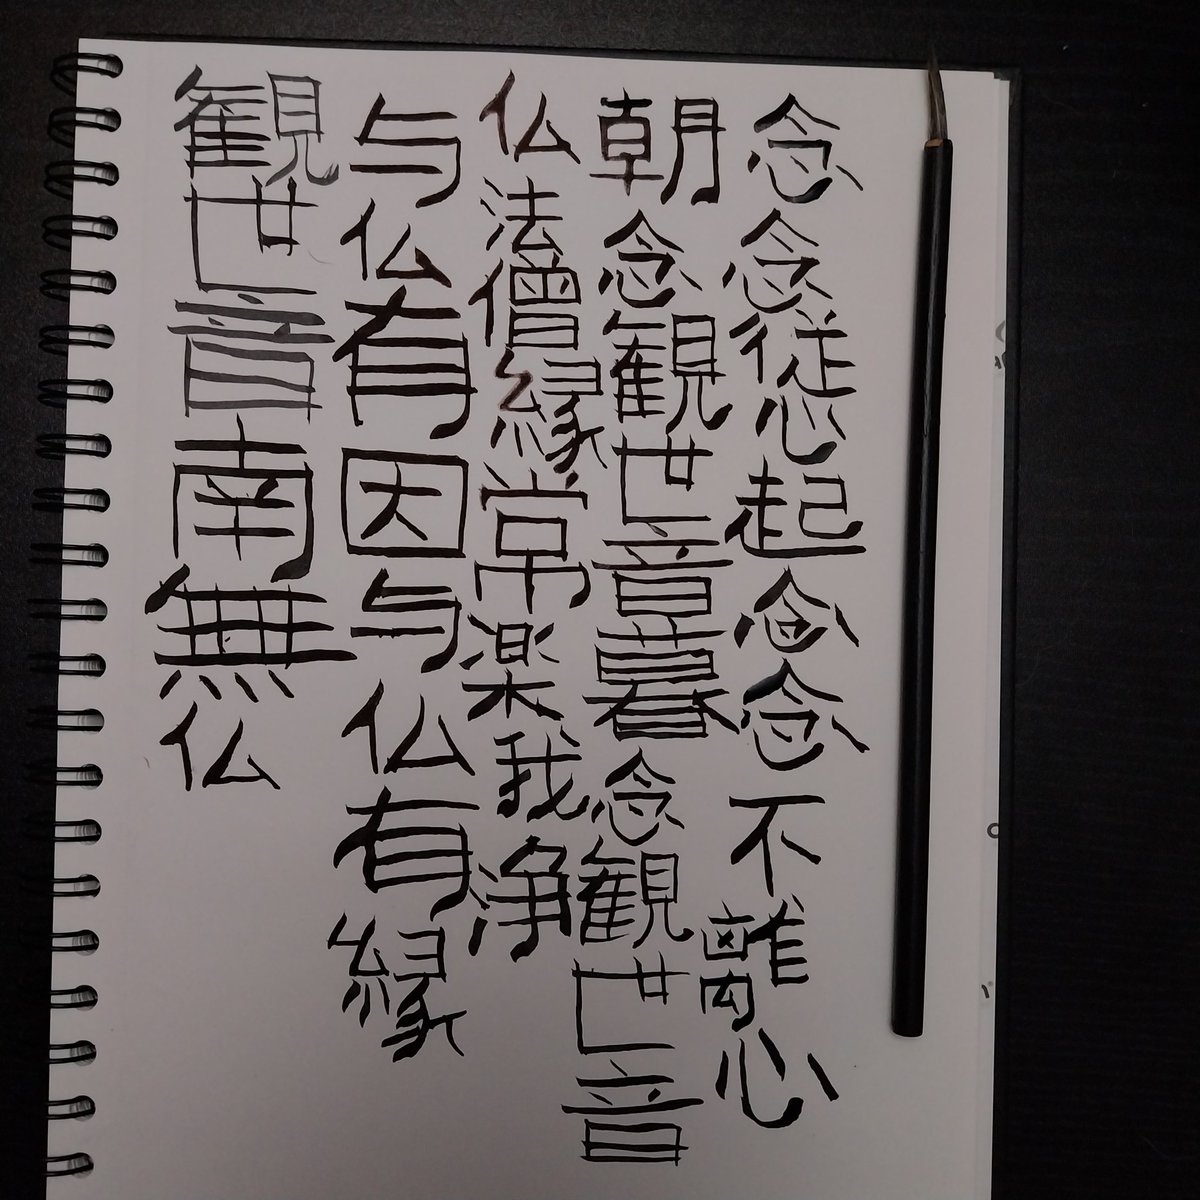 念念従心起念念不離心
朝念観世音暮念観世音
仏法僧縁常楽我浄
与仏有因与仏有縁
観世音南無仏